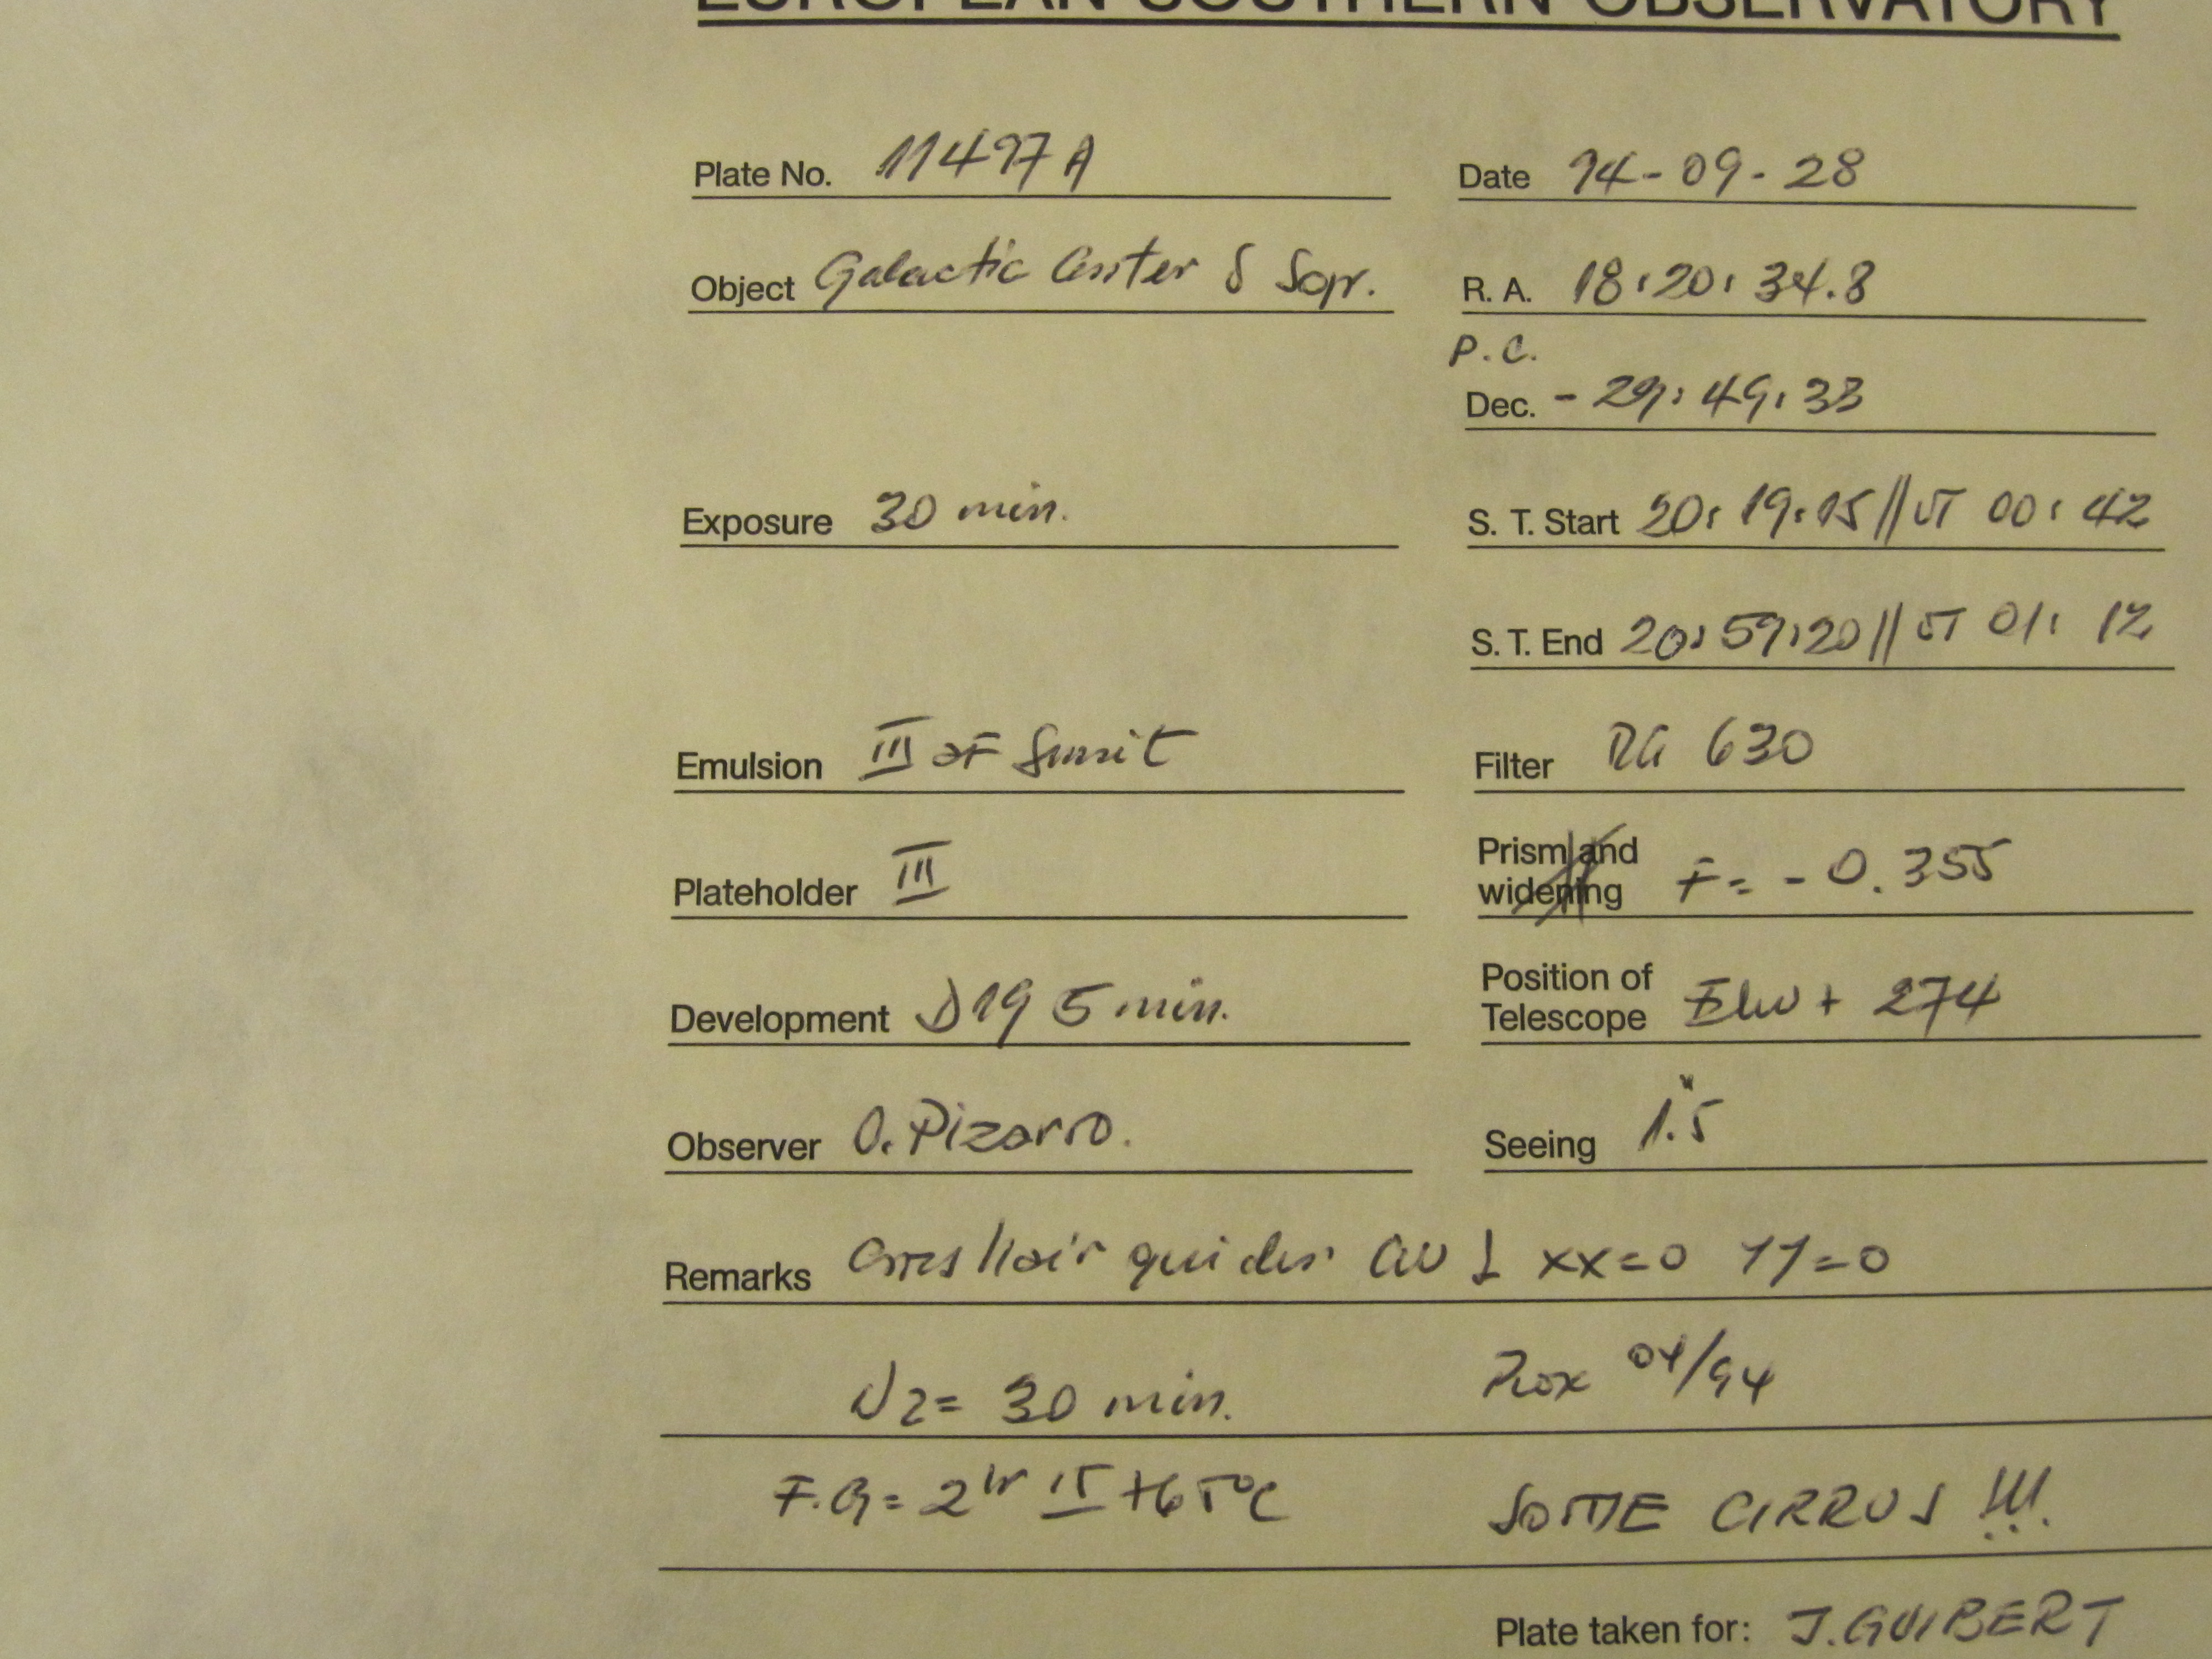 EUROPEAN SOUTHERN OBSERVATORY
Plate No. 11497 A Date 94-09-28
Object Galactic Center & Sgr. R. A. 18:20:34.8
P.C.
Dec. -29:49:33
Exposure 30 min. S. T. Start 20:19:15 // UT 00:42
S. T. End 20:59:20 // UT 01:12
Emulsion III aF Filter RG 630
Plateholder III Prism and widening F= -0.355
Development D19 5 min. Position of Telescope + 274
Observer O. Pizarro. Seeing 1.5"
Remarks xx=0 yy=0
N2= 30 min. 04/94
F.G= 2hr +65°C SOME CIRRUS !!!
Plate taken for: J.GUIBERT